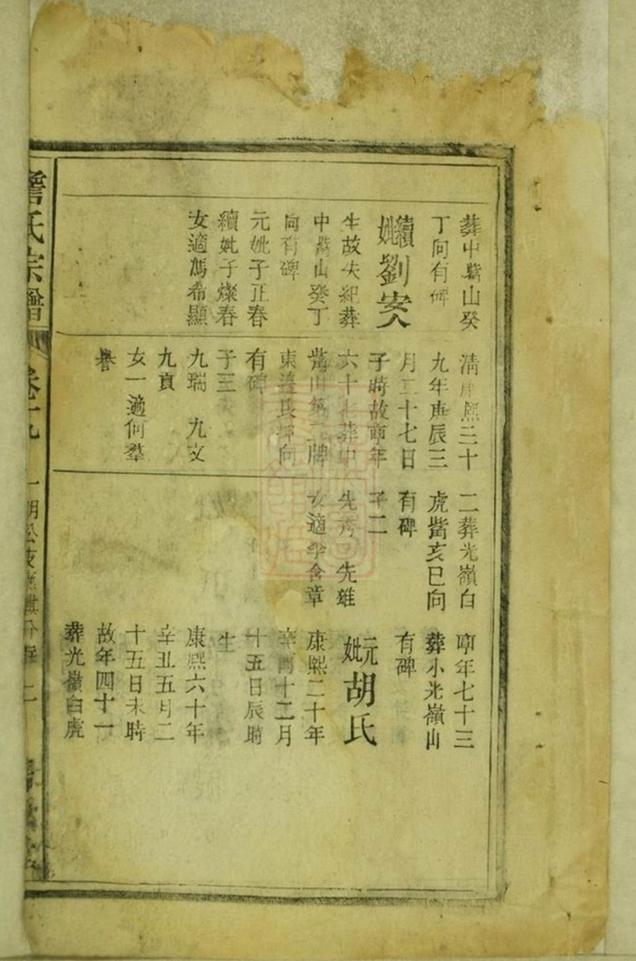 葬中嘴山癸
丁向有碑
續妣劉安人
生故失紀葬
中嘴山癸丁
向有碑
元妣子正春
續妣子燦春
女適馮希顯
清康熙三十
九年庚辰三
月二十七日
子時故享年
六十七葬中
嘴山第二牌
東邊艮坤向
有碑
子三
九瑞 九文
九貢
女一適何羣
譽
二葬光嶺白
虎嘴亥巳向
有碑
子二
先秀 先雄
女適李含章
享年七十三
葬小光嶺山
有碑
元妣胡氏
康熙二十年
辛酉十二月
十五日辰時
生
康熙六十年
辛丑五月二
十五日未時
故年四十一
葬光嶺白虎
氏宗譜
卷十九
二